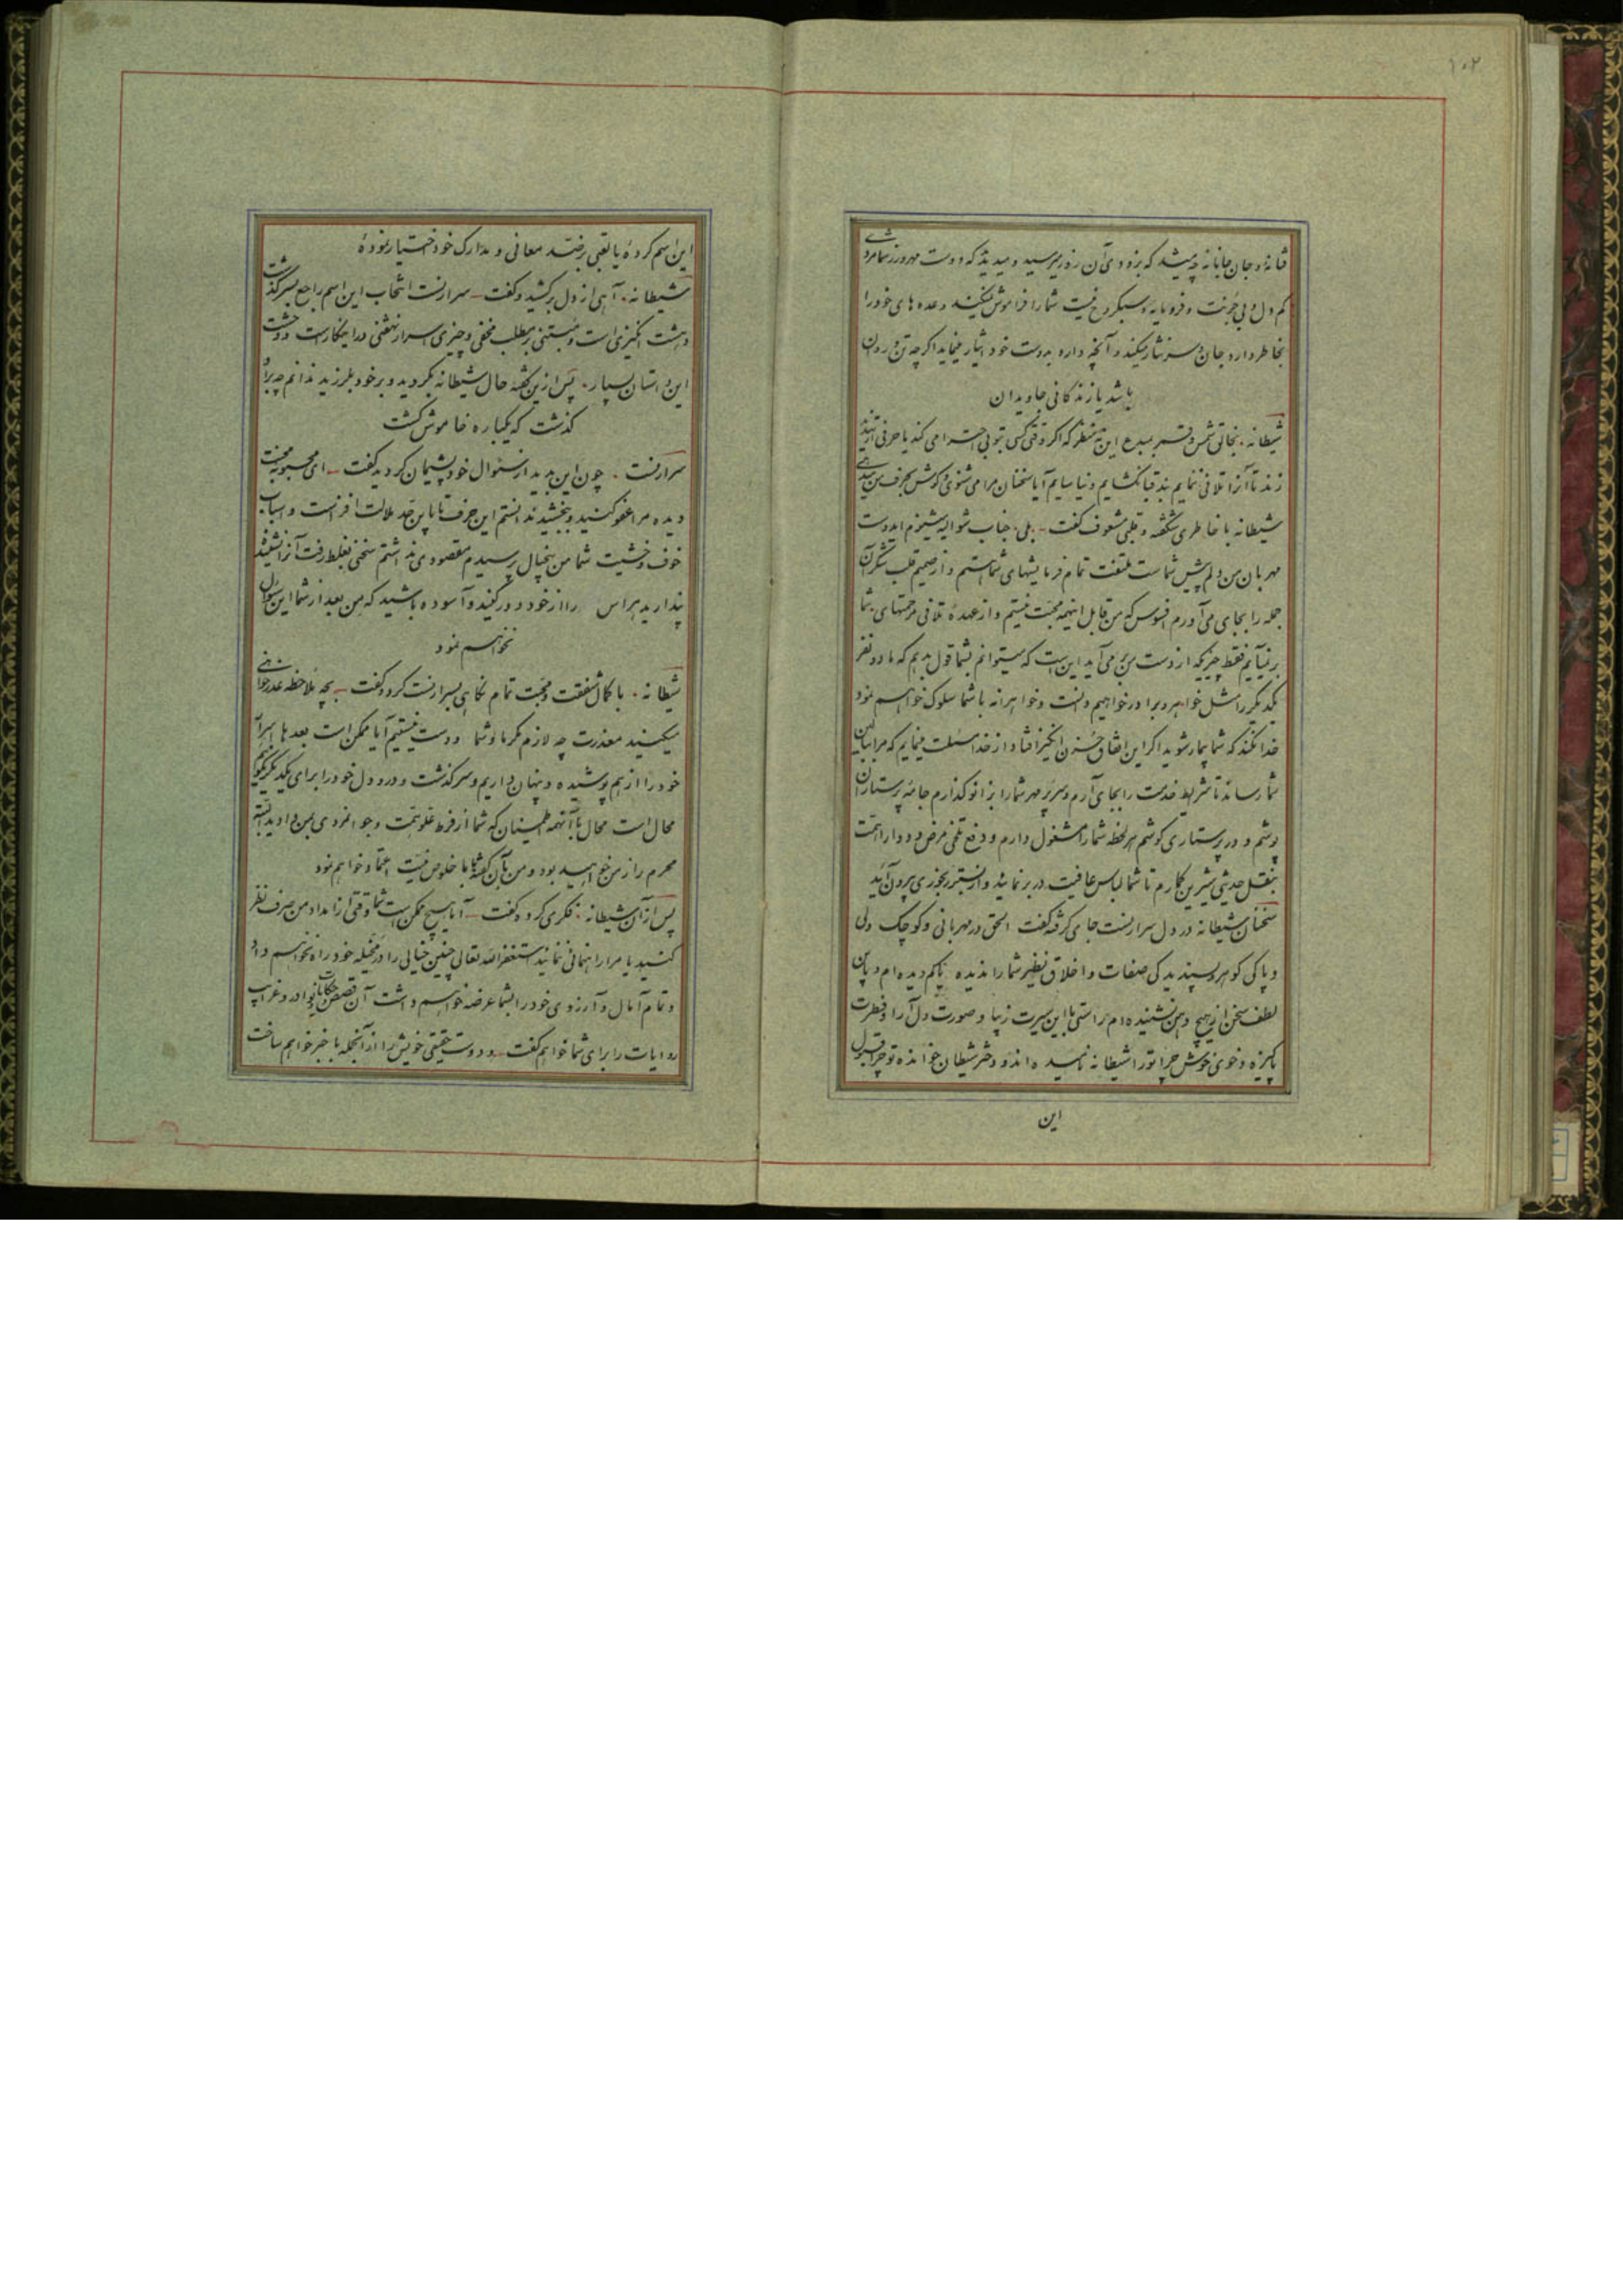 ۱۰۲
فسانهٔ و جان جانانه چه میشد که بزودی آن روز میرسید و میدیدید که دوست مهرورز شما مردی
کم دل و بی جربت و فرومایه و سبکروح نیست شما را فراموش نمیکند وعده های خود را
بخاطر دارد جان و سر نثار میکند و آنچه دارد بدوست خود ایثار مینماید اگرچه تن و روان
باشد یا زندگانی جاویدان
شیطانه . بخالق شمس و قمر مبدع این نه منظر که اگر وقتی کسی بتو بی احترامی کند یا حرفی از تهدید
زند تا آنرا تلافی ننمایم بند قبا نگشایم و نیاسایم آیا سخنان مرا میشنوی و گوش بحرف من میدهی
شیطانه با خاطری شگفته و قلبی مشعوف گفت - بلی جناب شوالیه میشنوم ایدوست
مهربان من دلم پیش شماست ملتفت تمام فرمایشهای شما هستم و از صمیم قلب شکر آن
جمله را بجای می آورم افسوس که من قابل اینهمه محبت نیستم و از عهدهٔ تلافی مرحمتهای شما
برنیایم فقط چیزیکه از دست من بر می آید این است که میتوانم بشما قول بدهم که ما دو نفر
یکدیگر را مثل خواهر و برادر خواهیم دانست و خواهرانه با شما سلوک خواهم نمود
خدا نکند که شما بیمار شوید اگر این اتفاق حزن انگیز افتاد از خدا مسئلت مینمایم که مرا ببالین
شما رساند تا شرایط خدمت را بجای آرم و سر پر مهر شما را بزانو گذارم جامهٔ پرستاران
پوشم و در پرستاری کوشم هر لحظه شما را مشغول دارم و دفع تلخی مرض و دوا را همت
بنقل حدیثی شیرین گمارم تا شما لباس عافیت در بر نمائید و از بستر رنجوری بیرون آئید
سخنان شیطانه در دل سرارنست جای گرفته گفت الحق در مهربانی و کوچک دلی
و پاکی گوهر و پسندیدگی صفات و اخلاق نظیر شما را ندیده یا کم دیده ام و باین
لطف سخن از هیچ دهن نشنیده ام براستی با این سیرت زیبا و صورت دل آرا و فطرت
پاکیزه و خوی خوش چرا تو را شیطانه نامیده اند و دختر شیطان خوانده تو چرا قبول
این
این اسم کرده یا بقبی برضد معانی و مدارک خود اختیار نموده
شیطانه . آهی از دل برکشید و گفت - سرارنست انتخاب این اسم راجع بسرگذشت
دهشت انگیزی است و مبتنی بر مطلب مخفی و چیزی اسرار نهفتنی در اینکار است و وحشت
این داستان بسیار . پس از این گفته حال شیطانه بگردید و بر خود بلرزید ندانم چه بر او
گذشت که یکباره خاموش گشت
سرارنست . چون این بدید از سئوال خود پشیمان گردید گفت - ای محبوبه محنت
دیده مرا عفو کنید و ببخشید ندانستم این حرف تا باین حد ملالت افزاست و اسباب
خوف و خشیت شما من بیخیال پرسیدم مقصودی نداشتم سخنی بغلط رفت آنرا نشنیده
پندارید هراس را از خود دور کنید و آسوده باشید که من بعد از شما این سئوال
نخواهم نمود
شیطانه . با کمال شفقت و محبت تمام نگاهی بسرارنست کرد و گفت - بچه ملاحظه عذرخواهی
میکنید معذرت چه لازم مگر ما و شما دوست نیستیم آیا ممکن است بعدها اسرار
خود را از هم پوشیده و پنهان داریم و سرگذشت و درد دل خود را برای یکدیگر نگوئیم
محال است محال با آنهمه اطمینان که شما از فرط علو همت و جوانمردی بمن دادید البته
محرم راز من خواهید بود و من بآن گفتهٔ شما با خلوص نیت اعتماد خواهم نمود
پس از آن شیطانه . فکری کرد و گفت - آیا هیچ ممکن است شما وقتی از امداد من صرف نظر
کنید یا مرا راهنمائی ننمائید استغفرالله تعالی چنین خیالی را در مخیله خود راه نخواهم داد
و تمام آمال و آرزوی خود را بشما عرضه خواهم داشت آن قصص و حکایات و نوادر و غرایب
روایات را برای شما خواهم گفت - و دوست حقیقی خویش را از آنجمله با خبر خواهم ساخت